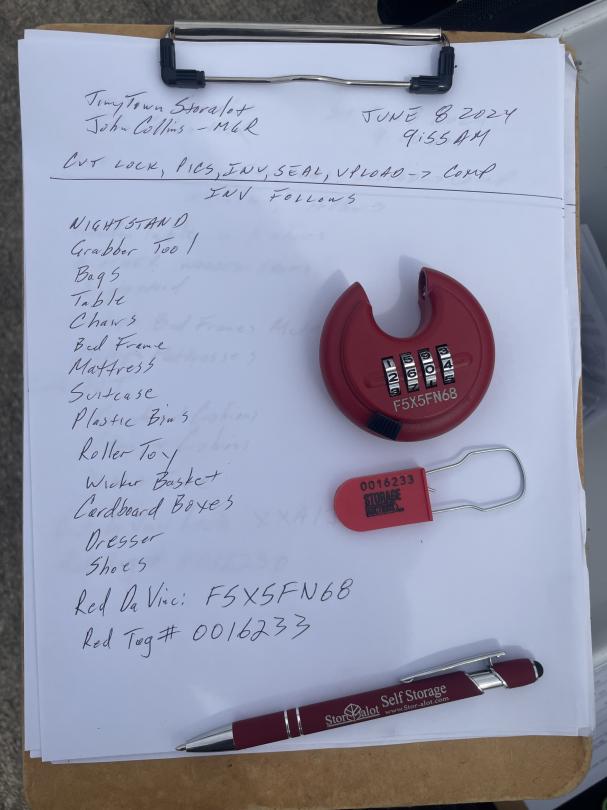 TinyTown Storalot
John Collins - MGR
JUNE 8 2024
9:55 AM
CUT LOCK, PICS, INV, SEAL, UPLOAD -> COMP
INV FOLLOWS
NIGHTSTAND
Grabber Tool
Bags
Table
Chairs
Bed Frame
Mattress
Suitcase
Plastic Bins
Roller Toy
Wicker Basket
Cardboard Boxes
Dresser
Shoes
Red DaVinci F5X5FN68
Red Tag # 0016233
F5X5FN68
0016233
STORAGE
Storalot Self Storage
www.Stor-alot.com